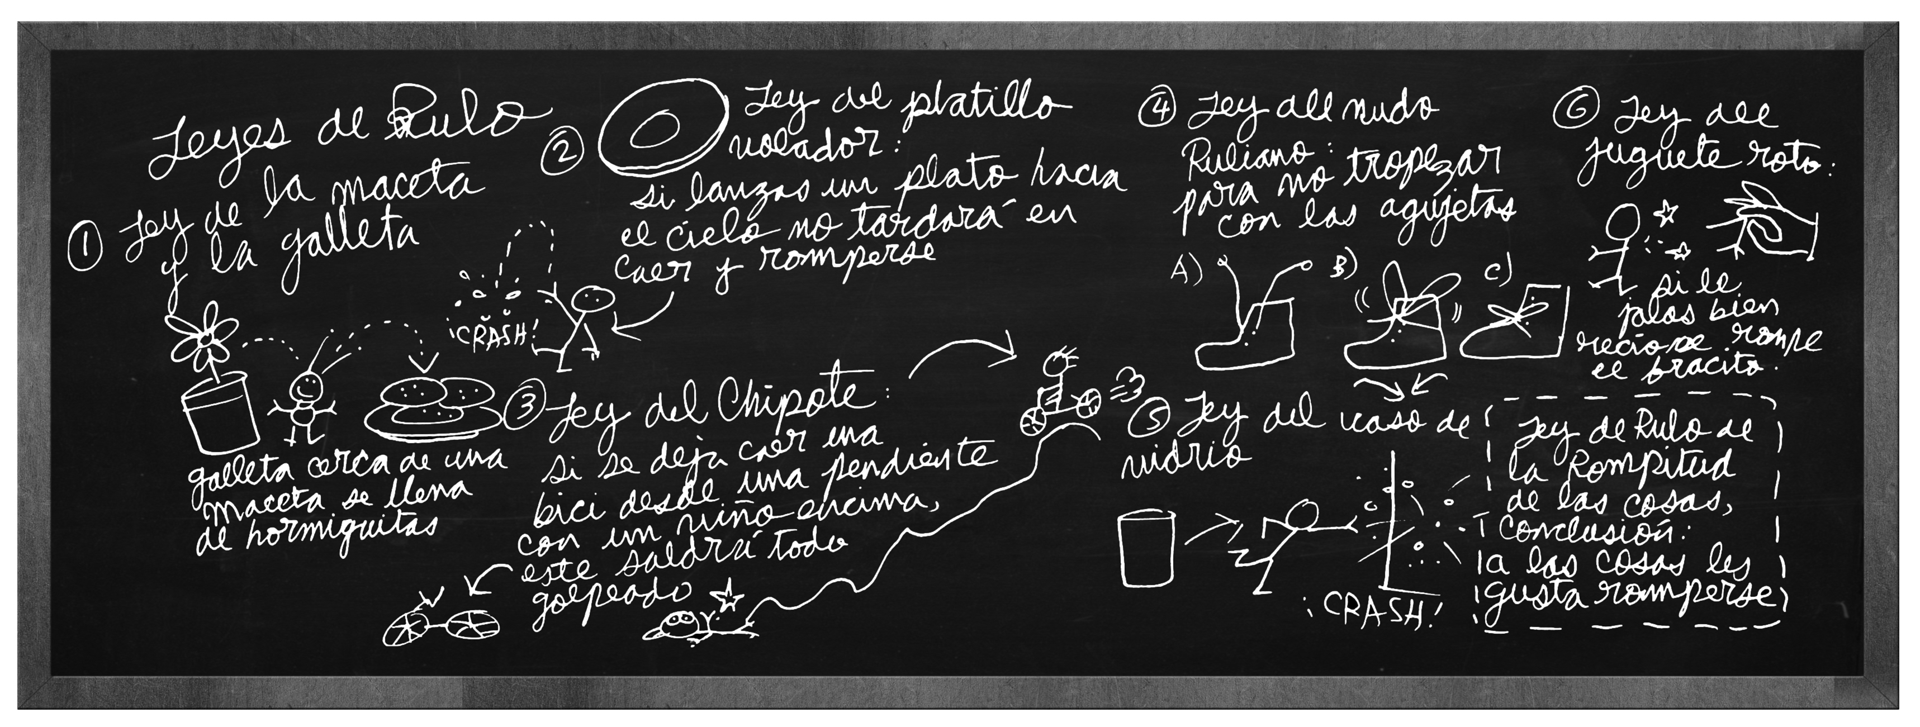 Leyes de Rulo
① Ley de la maceta
y la galleta
galleta cerca de una
maceta se llena
de hormiguitas
② Ley del platillo
volador:
si lanzas un plato hacia
el cielo no tardará en
caer y romperse
¡CRASH!
③ Ley del Chipote:
si se deja caer una
bici desde una pendiente
con un niño encima,
este saldrá todo
golpeado
④ Ley del nudo
Ruliano:
para no tropezar
con las agujetas
A) B) C)
⑤ Ley del vaso de
vidrio
¡CRASH!
⑥ Ley del
juguete roto:
si le
jalas bien
recio se rompe
el bracito.
Ley de Rulo de
la Rompitud
de las cosas,
conclusión:
a las cosas les
gusta romperse